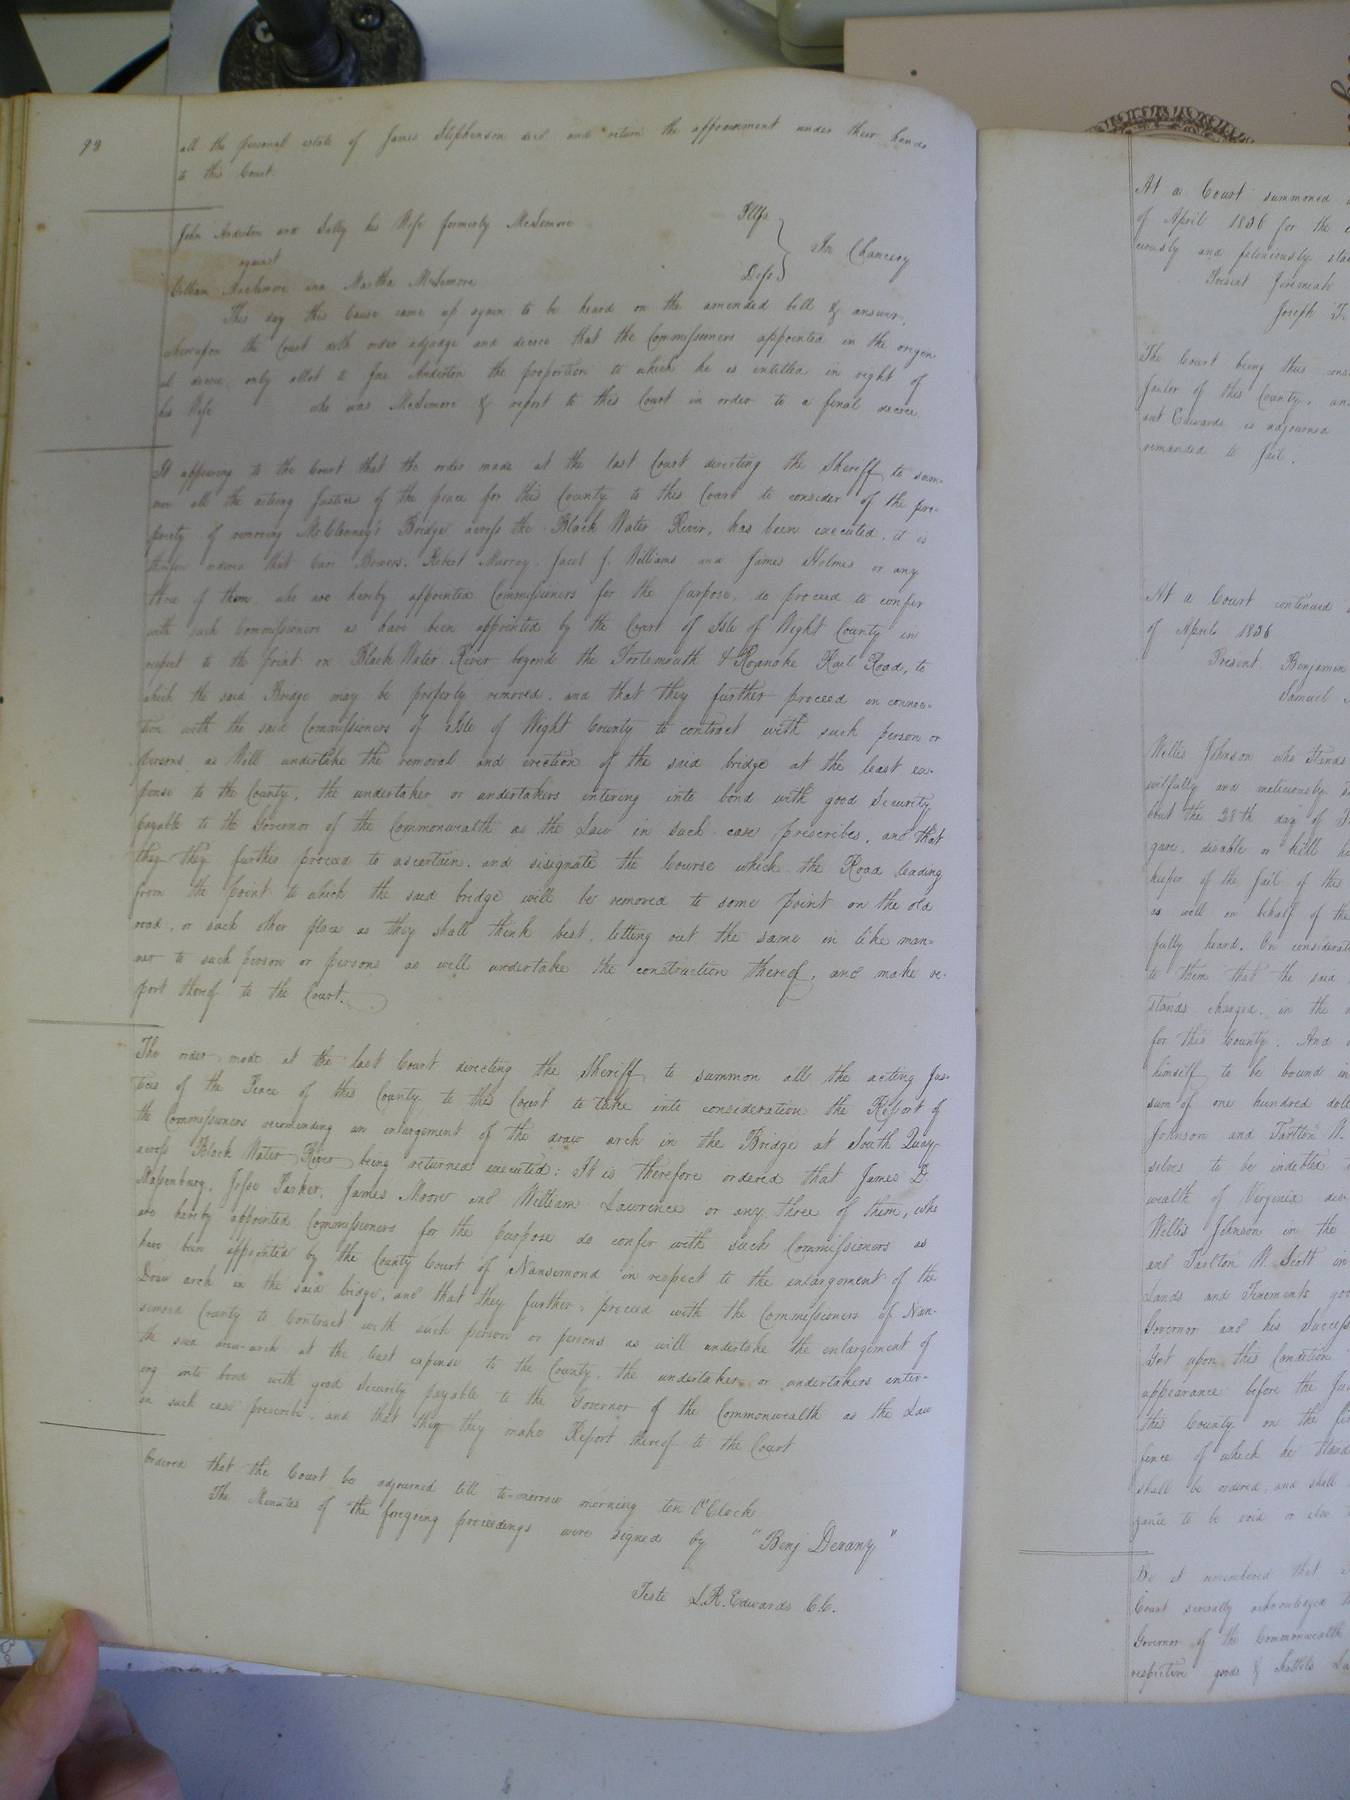 98
all the personal estate of James Stephenson decd and return the appraisement under their hands
to this Court.
John Anderton and Sally his Wife formerly McLemore Pltfs
against In Chancery
McLemore and Martha McLemore Defts
This day this Cause came up again to be heard on the amended bill & answer,
whereupon the Court doth order adjudge and decree that the Commissioners appointed in the origin-
al decree, only allot to Jno Anderton the proportion to which he is intitled in right of
his Wife who was McLemore & report to this Court in order to a final decree.
It appearing to the Court that the order made at the last Court directing the Sheriff to sum-
mon all the acting Justices of the peace for this County to this Court to consider of the pro-
priety of removing McClenney's Bridge across the Black Water River, has been executed, it is
therefore ordered that Carr Bowers, Robert Murray, Jacob J. Williams and James Holmes or any
three of them who are hereby appointed Commissioners for the purpose, do proceed to confer
with such Commissioners as have been appointed by the Court of Isle of Wight County in
respect to the point on Black Water River beyond the Portsmouth & Roanoke Rail Road, to
which the said Bridge may be properly removed, and that they further proceed in connec-
tion with the said Commissioners of Isle of Wight County to contract with such person or
persons as Will undertake the removal and erection of the said bridge at the least ex-
pense to the County, the undertaker or undertakers entering into bond with good Security
payable to the Governor of the Commonwealth as the Law in such case prescribes, and that
they they further proceed to ascertain, and designate the Course which the Road leading
from the point to which the said bridge will be removed to some point on the old
road, or such other place as they shall think best, letting out the same in like man-
ner to such person or persons as will undertake the construction thereof, and make re-
port thereof to the Court.
The order made at the last Court directing the Sheriff to summon all the acting Jus-
tices of the Peace of this County to this Court to take into consideration the Report of
the Commissioners recomending an enlargement of the draw arch in the Bridge at South Quay
across Black Water River being returned executed; It is therefore ordered that James D.
Massenburg, Jesse Parker, James Moore and William Lawrence or any three of them, who
are hereby appointed Commissioners for the purpose do confer with such Commissioners as
have been appointed by the County Court of Nansemond in respect to the enlargement of the
Draw arch in the said bridge, and that they further proceed with the Commissioners of Nan-
semond County to Contract with such person or persons as will undertake the enlargement of
the said draw-arch at the least expense to the County, the undertaker or undertakers enter-
ing into bond with good Security payable to the Governor of the Commonwealth as the Law
in such case prescribes, and that they they make Report thereof to the Court
Ordered that the Court be adjourned till to-morrow morning ten O'Clock
The Minutes of the foregoing proceedings were signed by "Benj Devany"
Teste L.R. Edwards C.C.
At a Court summoned
of April 1836 for the
ciously and feloniously
Present Jeremiah
Joseph T.
The Court being thus
Jailor of this County, and
Edwards is adjourned
remanded to Jail.
At a Court continued
of April 1836
Present Benjamin
Samuel
Willis Johnson who stands
wilfully and maliciously
the 28th day of
disable or kill
keeper of the Jail of this
as well on behalf of the
fully heard. On
to them that the said
stands charged, in the
for this County. And
himself to be bound in
sum of one hundred
Johnson and Tarlton W.
selves to be indebted
wealth of Virginia
Willis Johnson in the
and Tarlton W. Scott in
Lands and Tenements
Governor and his
Yet upon this Condition
appearance before the
this County on the
fence of which he stands
shall be ordered, and shall
zance to be void or else
Be it remembered that
Court severally acknowledged
Governor of the Commonwealth
respective goods & chattels